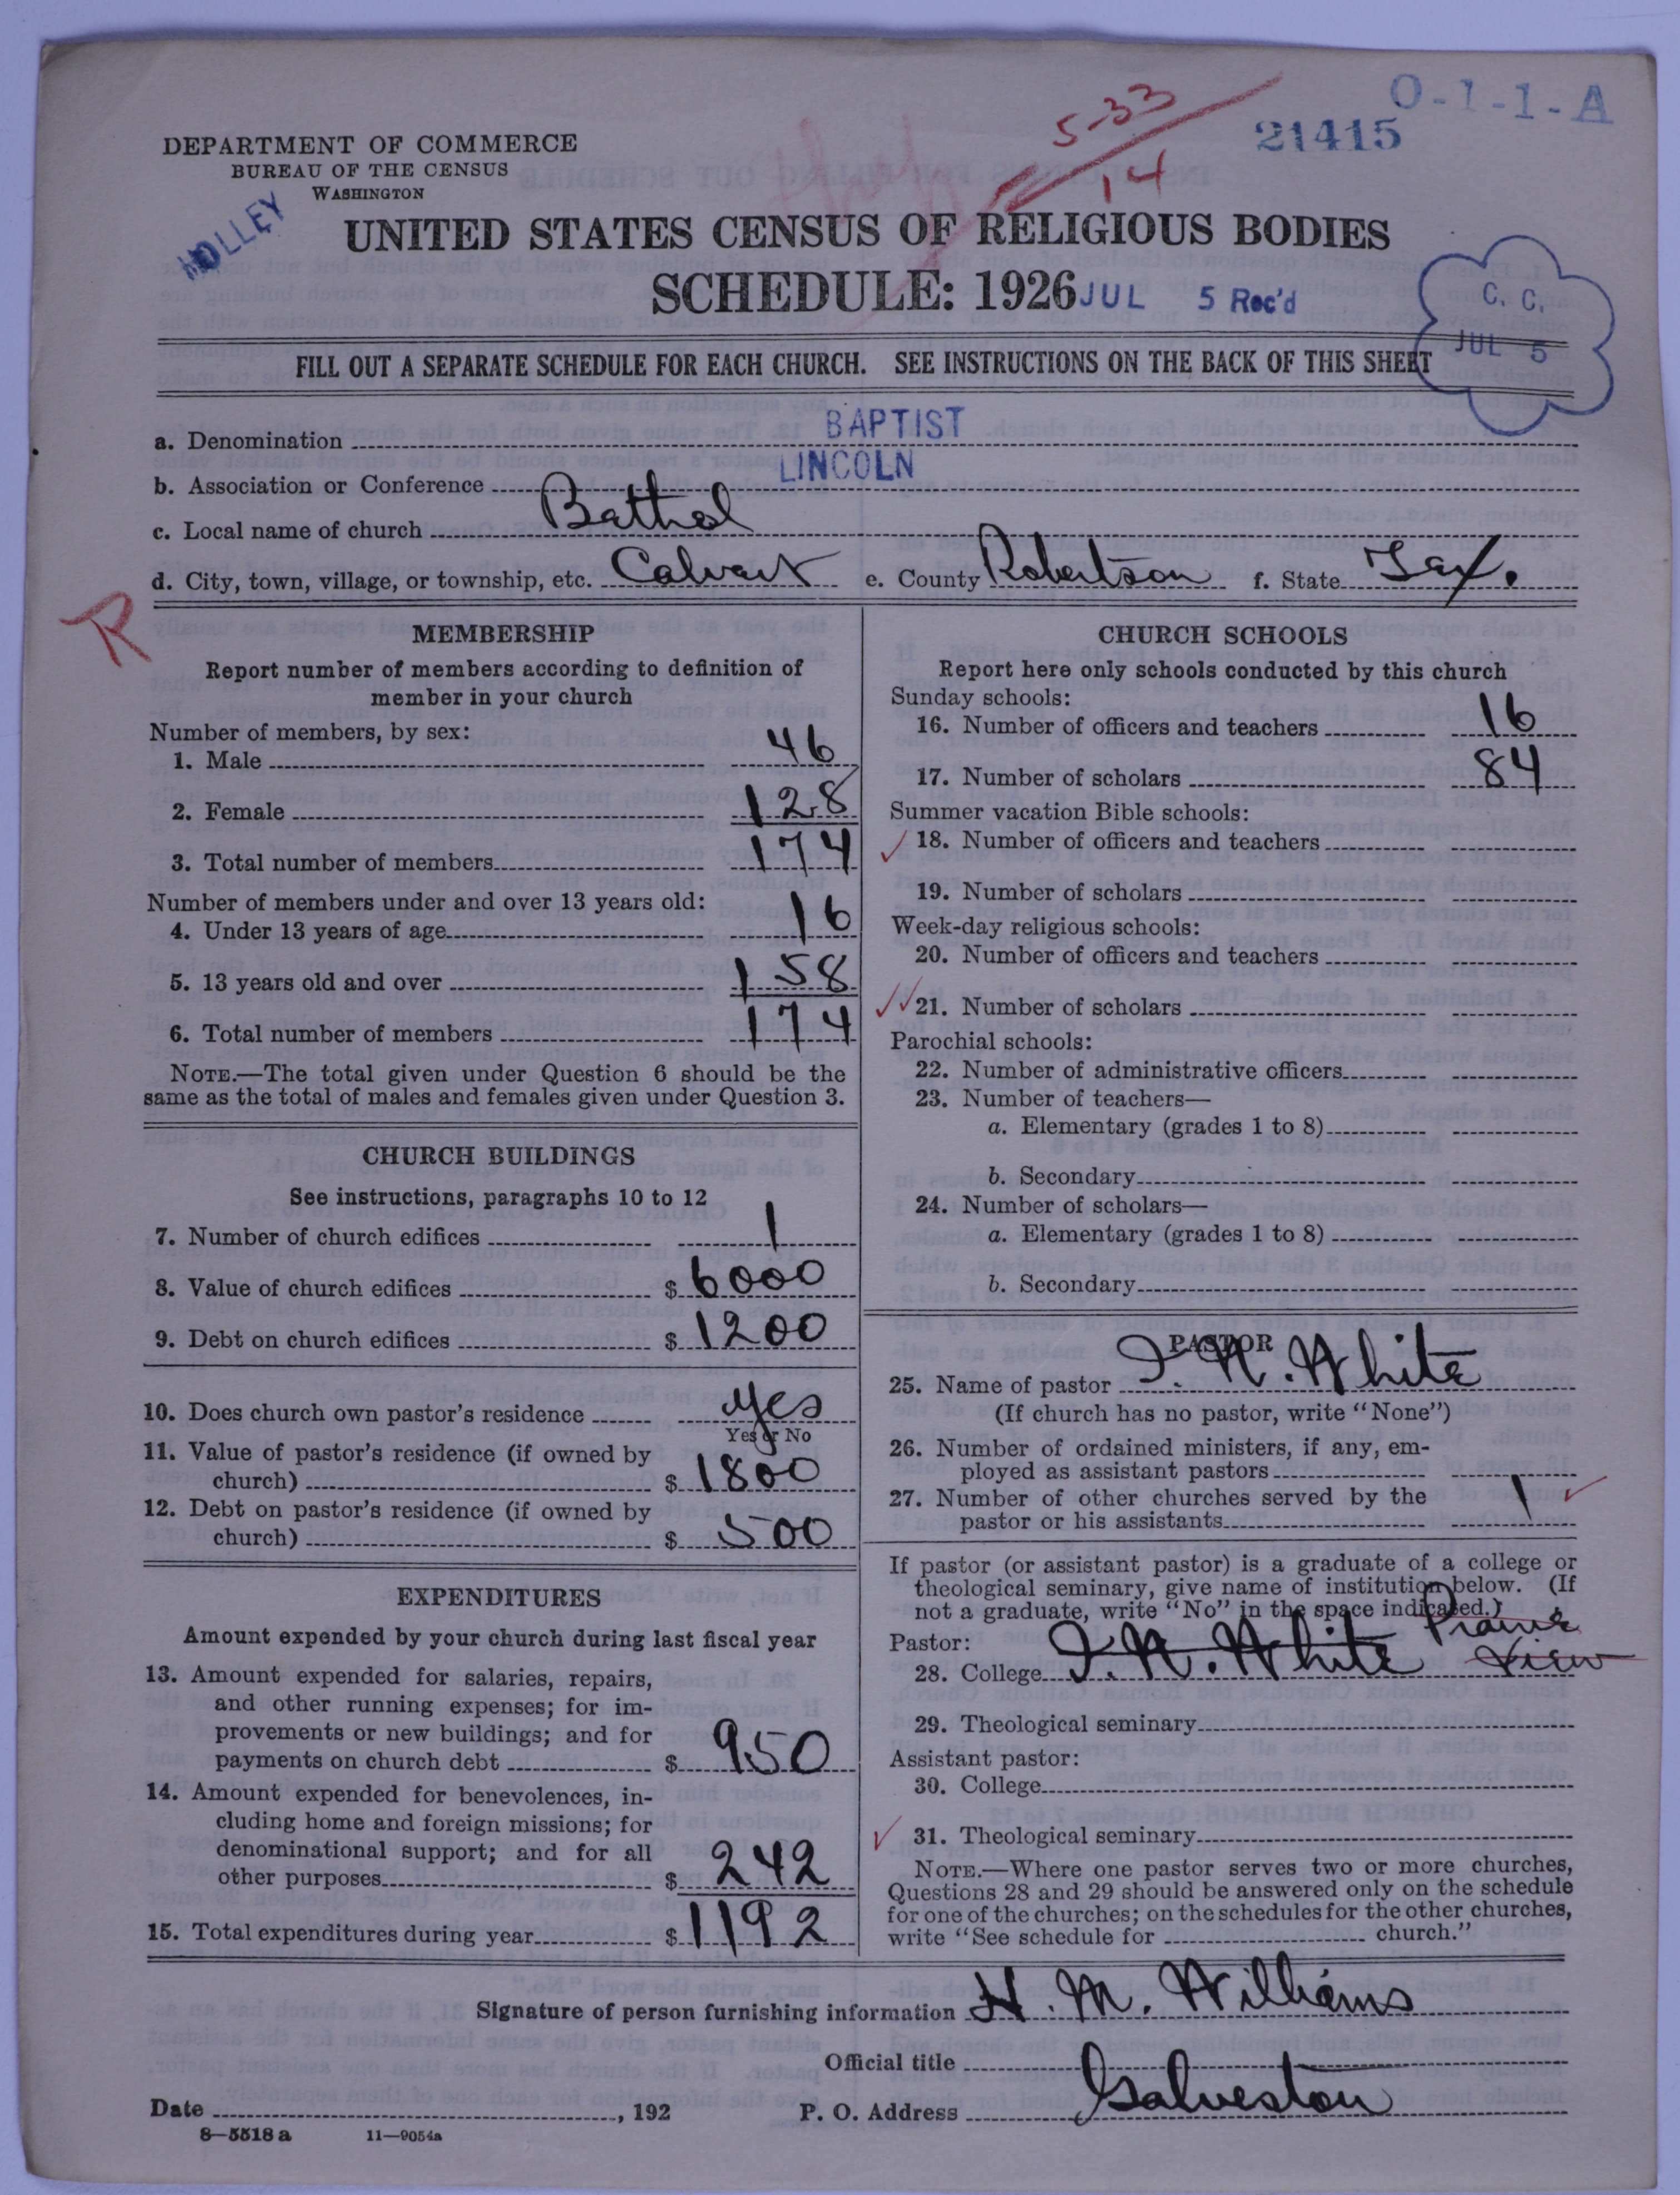 O-1-1-A
5-33
14
21415
DEPARTMENT OF COMMERCE
BUREAU OF THE CENSUS
WASHINGTON
HOLLEY
UNITED STATES CENSUS OF RELIGIOUS BODIES
SCHEDULE: 1926 JUL 5 Rec'd
C. C.
JUL 5
FILL OUT A SEPARATE SCHEDULE FOR EACH CHURCH. SEE INSTRUCTIONS ON THE BACK OF THIS SHEET
a. Denomination BAPTIST
b. Association or Conference LINCOLN
c. Local name of church Bethel
d. City, town, village, or township, etc. Calvert e. County Robertson f. State Tex.
R
MEMBERSHIP
Report number of members according to definition of
member in your church
Number of members, by sex:
1. Male 46
2. Female 128
3. Total number of members 174
Number of members under and over 13 years old:
4. Under 13 years of age 16
5. 13 years old and over 158
6. Total number of members 174
NOTE.—The total given under Question 6 should be the
same as the total of males and females given under Question 3.
CHURCH BUILDINGS
See instructions, paragraphs 10 to 12
7. Number of church edifices 1
8. Value of church edifices $ 6000
9. Debt on church edifices $ 1200
10. Does church own pastor's residence yes
Yes or No
11. Value of pastor's residence (if owned by
church) $ 1800
12. Debt on pastor's residence (if owned by
church) $ 500
EXPENDITURES
Amount expended by your church during last fiscal year
13. Amount expended for salaries, repairs,
and other running expenses; for im-
provements or new buildings; and for
payments on church debt $ 950
14. Amount expended for benevolences, in-
cluding home and foreign missions; for
denominational support; and for all
other purposes $ 242
15. Total expenditures during year $ 1192
CHURCH SCHOOLS
Report here only schools conducted by this church
Sunday schools:
16. Number of officers and teachers 16
17. Number of scholars 84
Summer vacation Bible schools:
18. Number of officers and teachers
19. Number of scholars
Week-day religious schools:
20. Number of officers and teachers
21. Number of scholars
Parochial schools:
22. Number of administrative officers
23. Number of teachers—
a. Elementary (grades 1 to 8)
b. Secondary
24. Number of scholars—
a. Elementary (grades 1 to 8)
b. Secondary
PASTOR
25. Name of pastor I. N. White
(If church has no pastor, write "None")
26. Number of ordained ministers, if any, em-
ployed as assistant pastors
27. Number of other churches served by the
pastor or his assistants 1
If pastor (or assistant pastor) is a graduate of a college or
theological seminary, give name of institution below. (If
not a graduate, write "No" in the space indicated.)
Pastor: Prairie
28. College I. N. White View
29. Theological seminary
Assistant pastor:
30. College
31. Theological seminary
NOTE.—Where one pastor serves two or more churches,
Questions 28 and 29 should be answered only on the schedule
for one of the churches; on the schedules for the other churches,
write "See schedule for church."
Signature of person furnishing information H. M. Williams
Official title
Date , 192 P. O. Address Galveston
8—5518 a 11—9054a